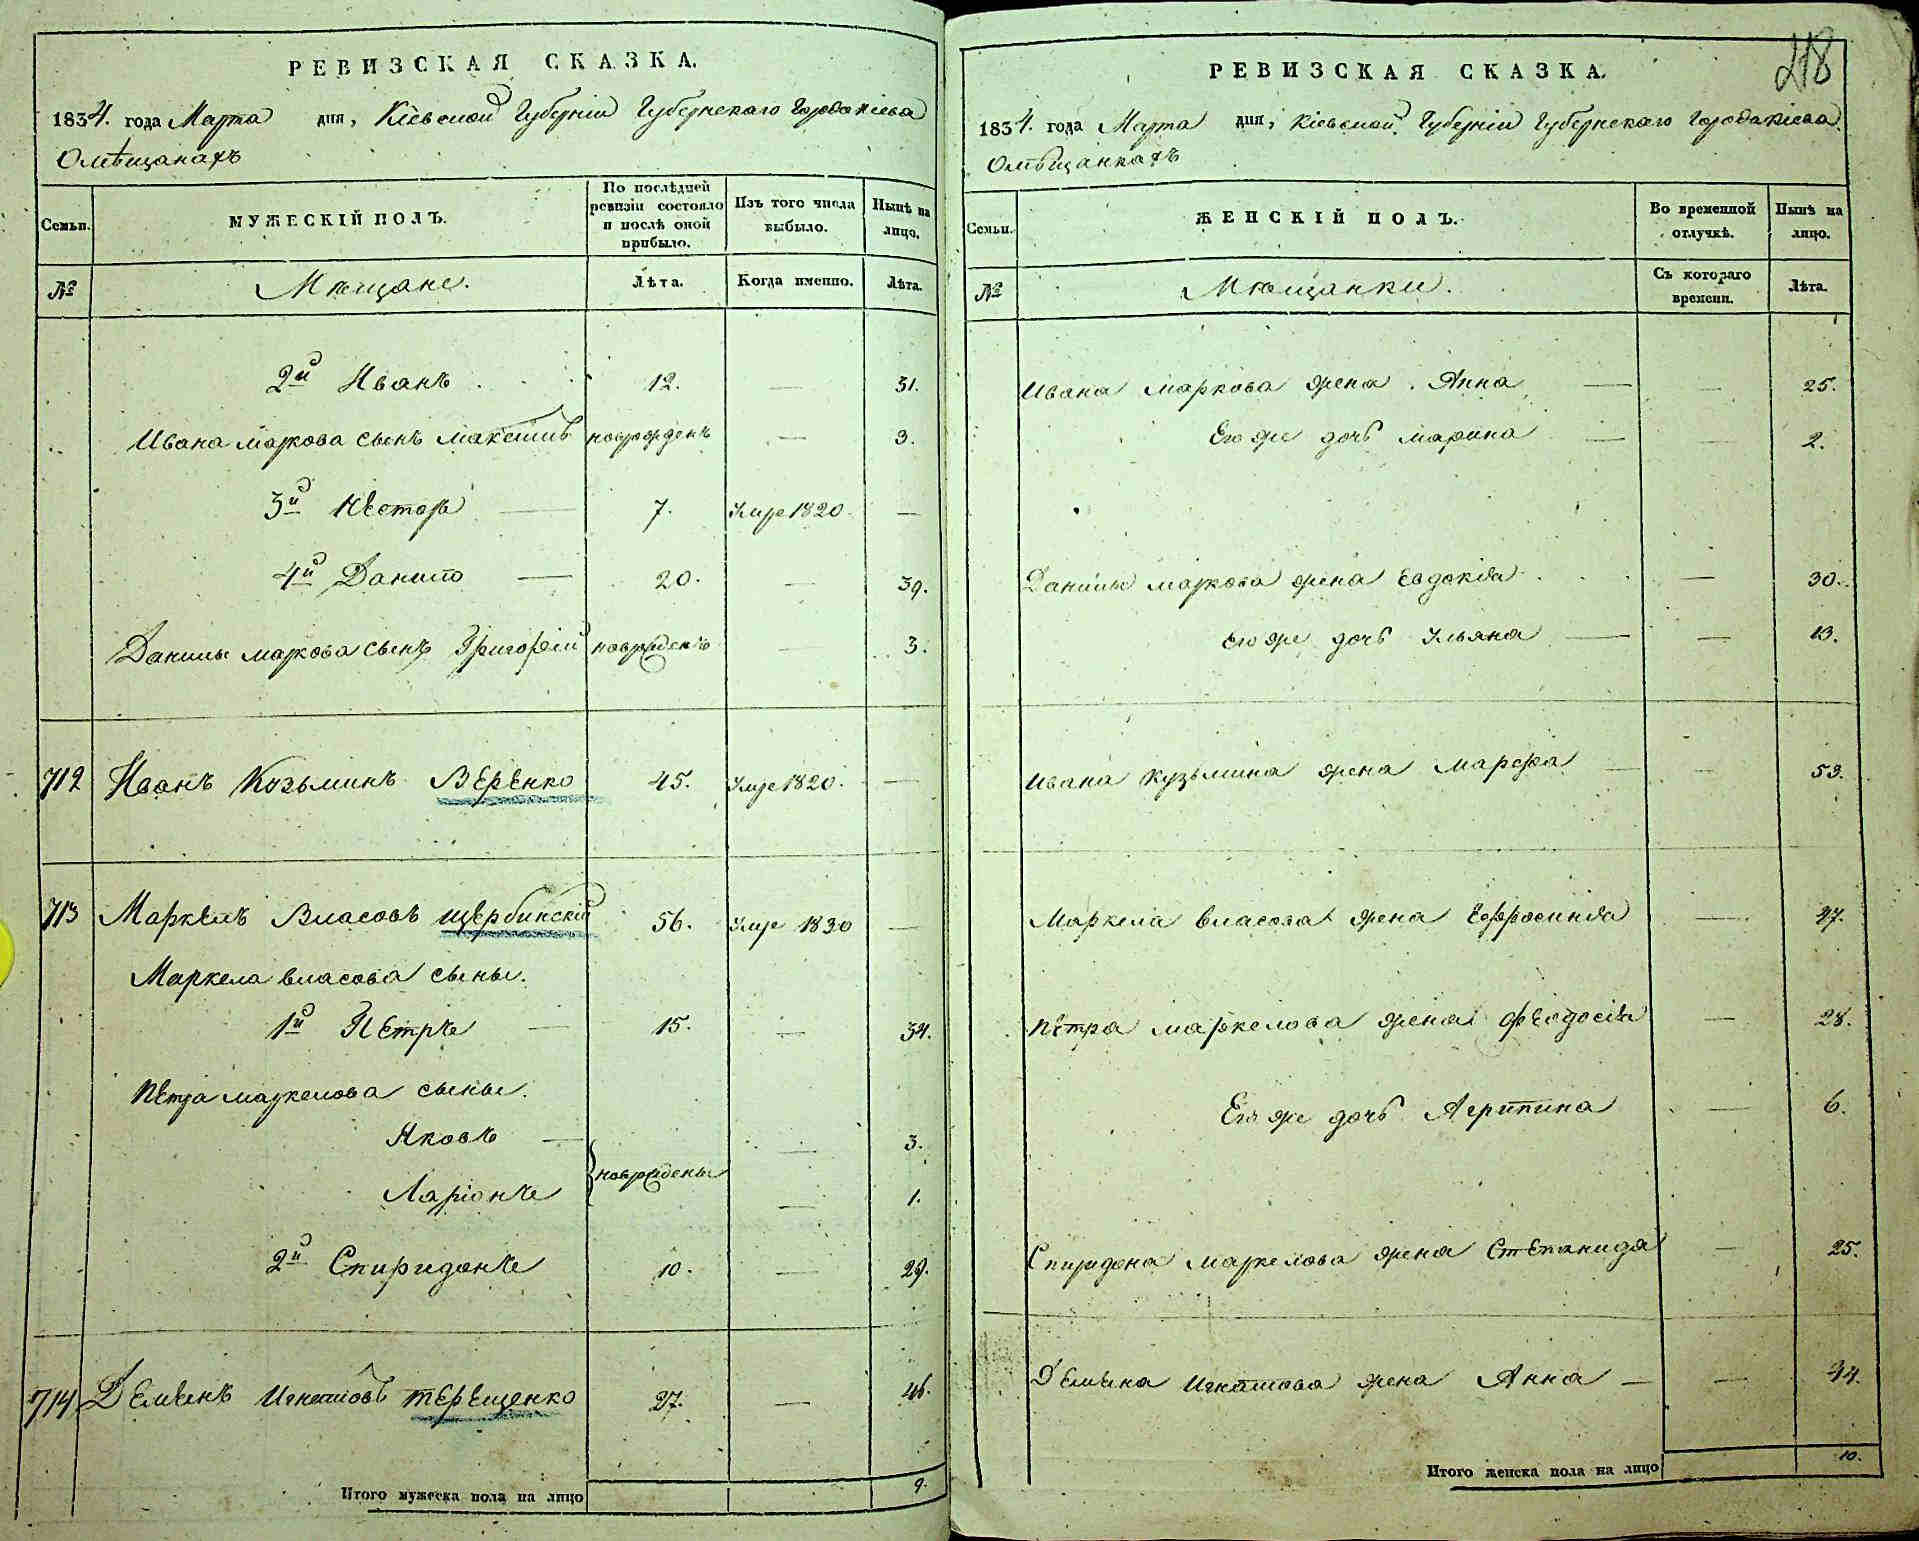 РЕВИЗСКАЯ СКАЗКА.
1834. года Марта дня, Кіевской Губерніи Губернскаго Города Кіева
О мѣщанахъ
Семьи.
МУЖЕСКІЙ ПОЛЪ.
По послѣдней ревизіи состояло и послѣ оной прибыло.
Изъ того числа выбыло.
Нынѣ на лицо.
№
Мѣщане.
Лѣта.
Когда именно.
Лѣта.
2й Иванъ 12. — 31.
Ивана Маркова сынъ Максимъ новрожденъ — 3.
3й Несторъ — 7. Умре 1820. —
4й Данило — 20. — 39.
Данилы Маркова сынъ Григорій новрожденъ — 3.
712 Иванъ Козьминъ Веренко 45. Умре 1820. —
713 Маркелъ Власовъ Щербинскій 56. Умре 1830 —
Маркела Власова сыны.
1й Петръ — 15. — 34.
Петра Маркелова сыны.
Яковъ — — 3.
новрождены
Ларіонъ — 1.
2й Спиридонъ 10. — 29.
714 Дементъ Игнатовъ Терещенко 27. — 46.
Итого мужеска пола на лицо 9.
218
РЕВИЗСКАЯ СКАЗКА.
1834. года Марта дня, Кіевской Губерніи Губернскаго Города Кіева.
О мѣщанкахъ
Семьи.
ЖЕНСКІЙ ПОЛЪ.
Во временной отлучкѣ.
Нынѣ на лицо.
№
Мѣщанки.
Съ котораго времени.
Лѣта.
Ивана Маркова жена Анна — — 25.
Его же дочь Марина — — 2.
Данилы Маркова жена Евдокія — 30.
Его же дочь Ульяна — — 13.
Ивана Кузьмина жена Марфа — — 53.
Маркела Власова жена Ефросинія — 47.
Петра Маркелова жена Феодосія — 28.
Его же дочь Агрипина — 6.
Спиридона Маркелова жена Степанида — 25.
Демена Игнатова жена Анна — — 44.
Итого женска пола на лицо 10.